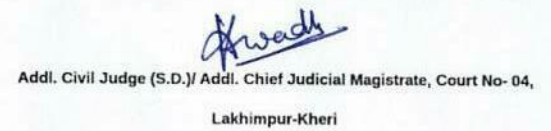 Addl. Civil Judge (S.D.)/ Addl. Chief Judicial Magistrate, Court No- 04,
Lakhimpur-Kheri